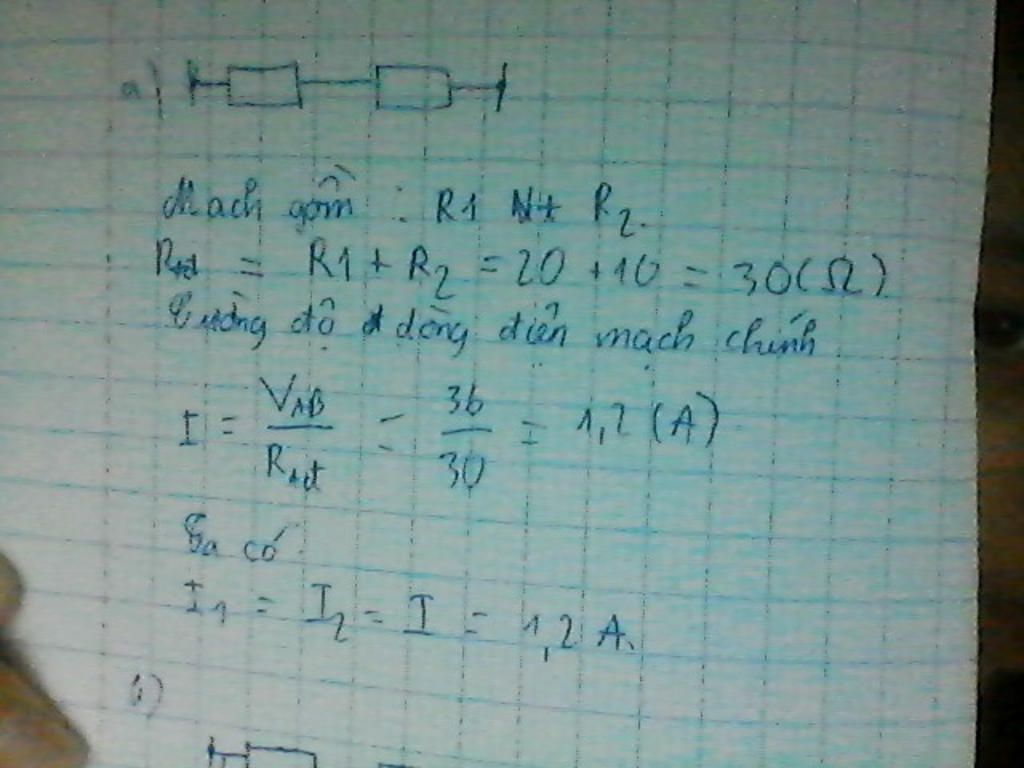 a)
Mach gồm : R1 Nt R2.
Rtđ = R1 + R2 = 20 + 10 = 30 (Ω)
Cường độ dòng điện mạch chính
I = VAB / Rtđ = 36 / 30 = 1,2 (A)
Ta có
I1 = I2 = I = 1,2 A.
b)